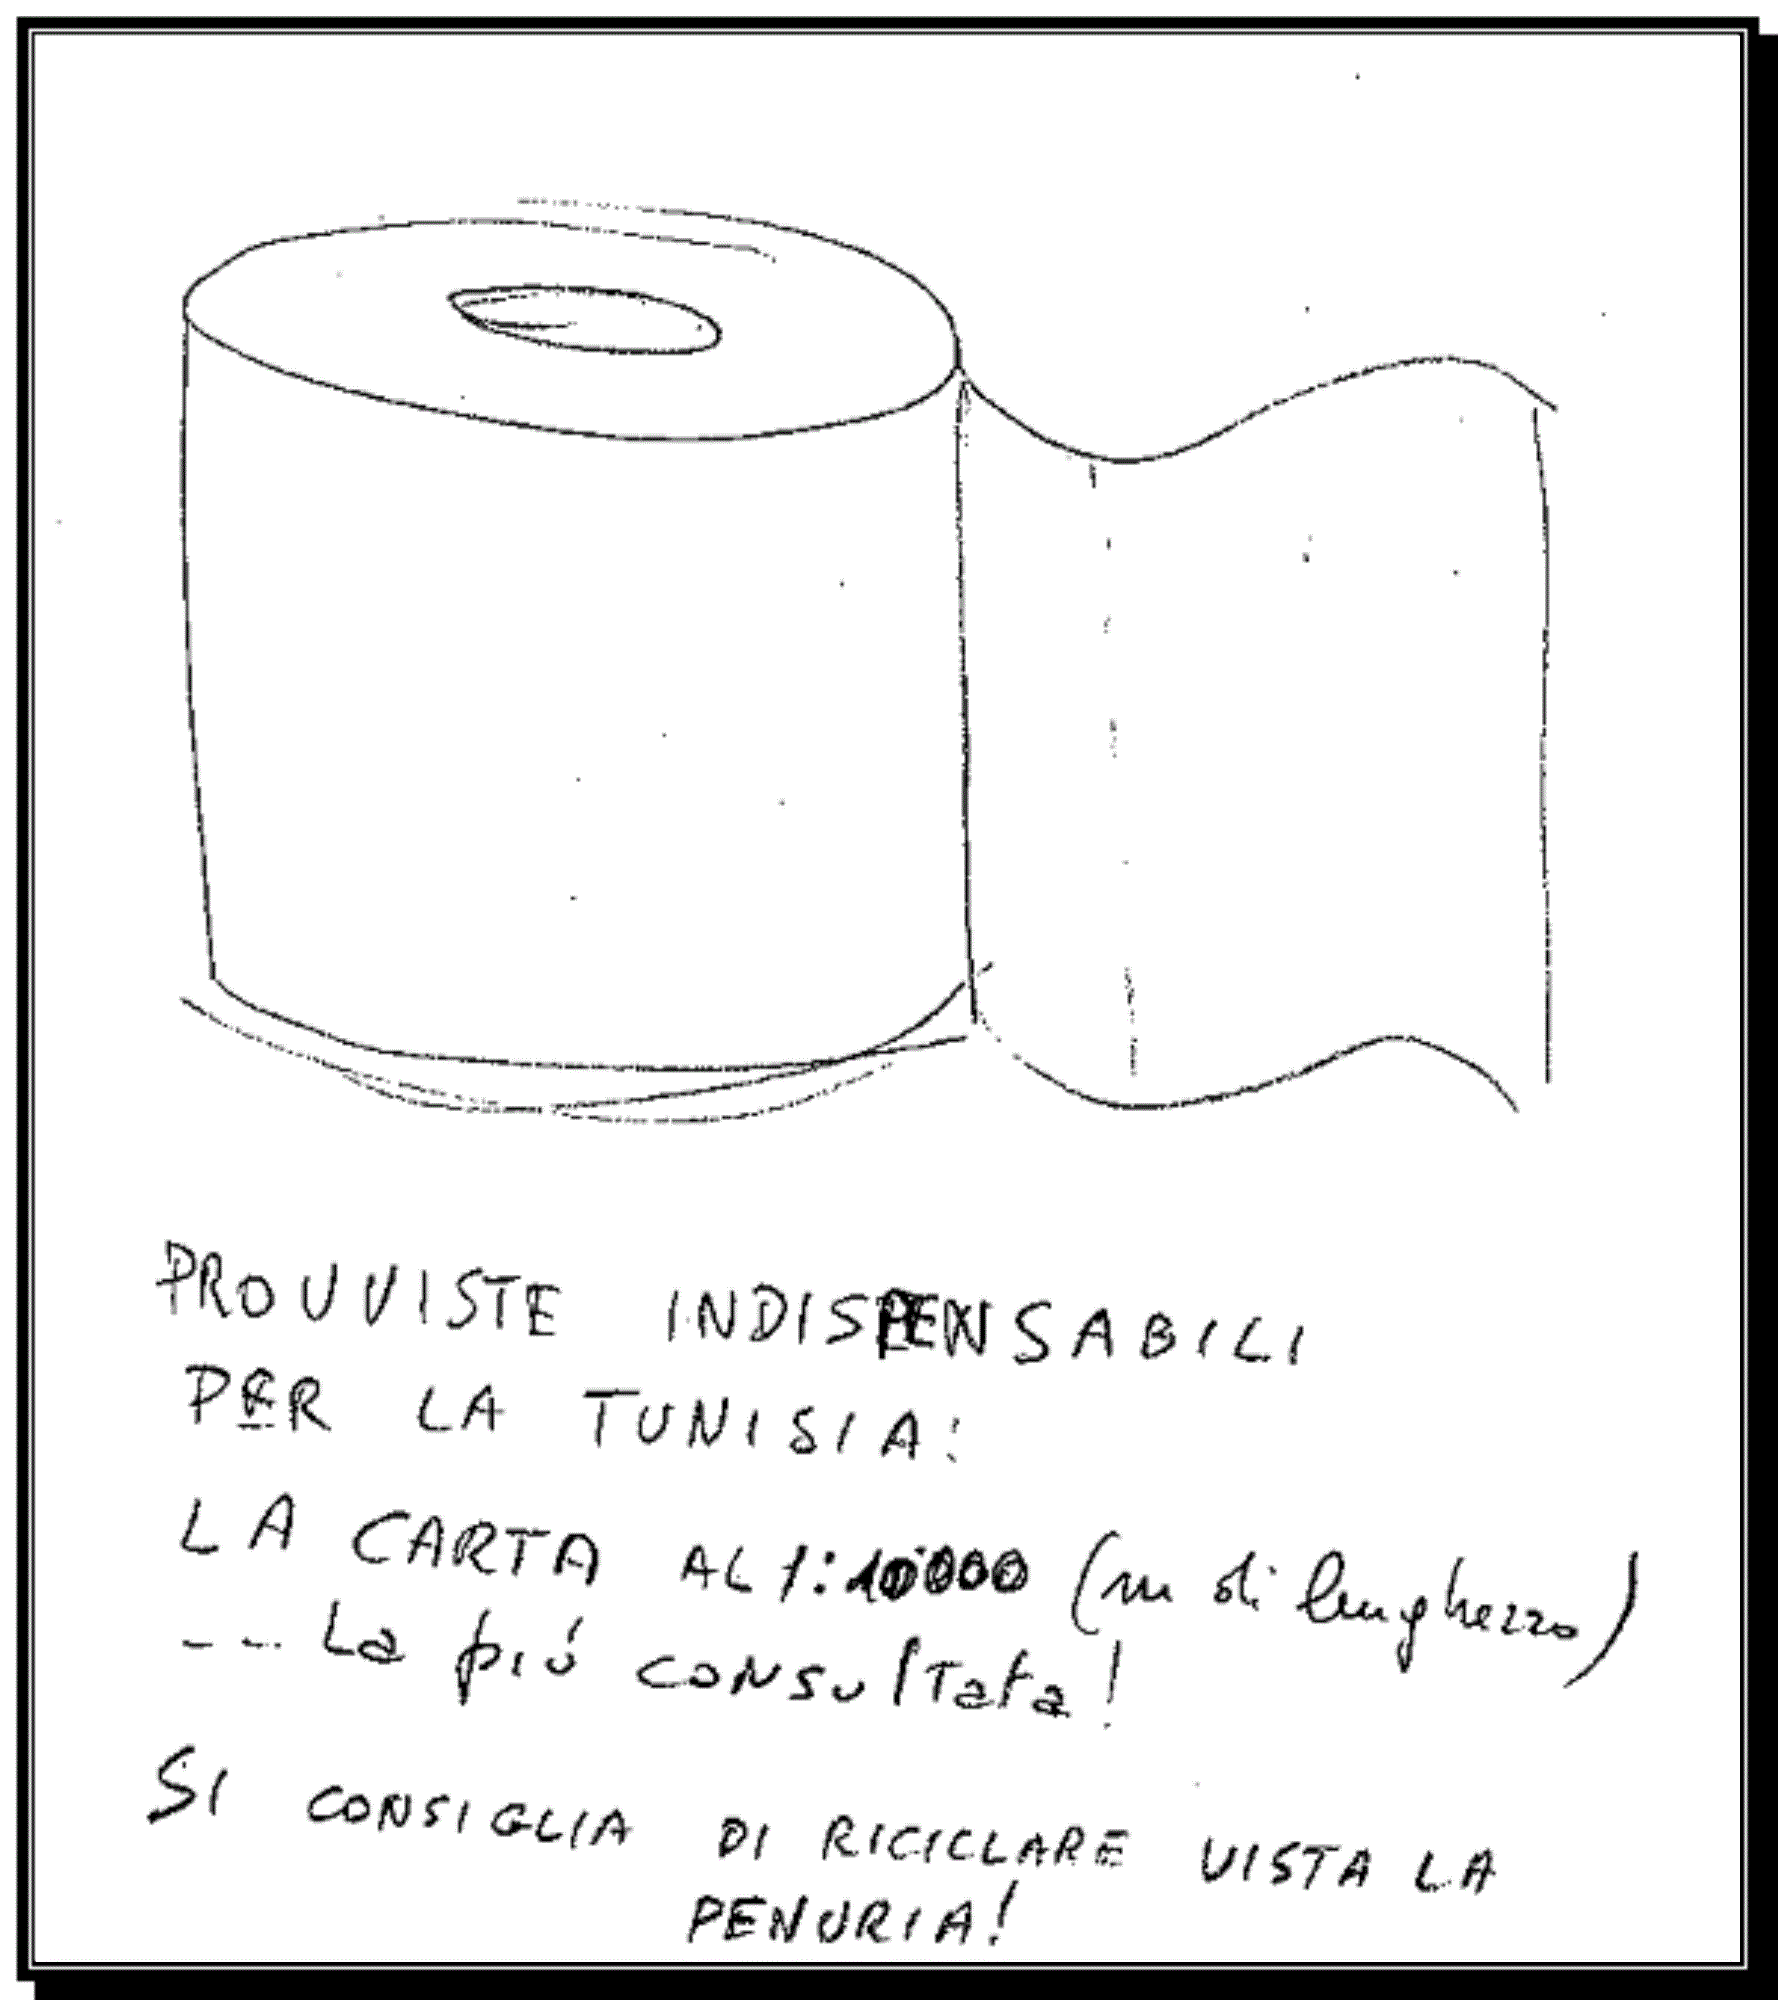 PROVVISTE INDISPENSABILI
PER LA TUNISIA:
LA CARTA AL 1:10000 (m di lunghezza)
--- La più consultata!
SI CONSIGLIA DI RICICLARE VISTA LA
PENURIA!